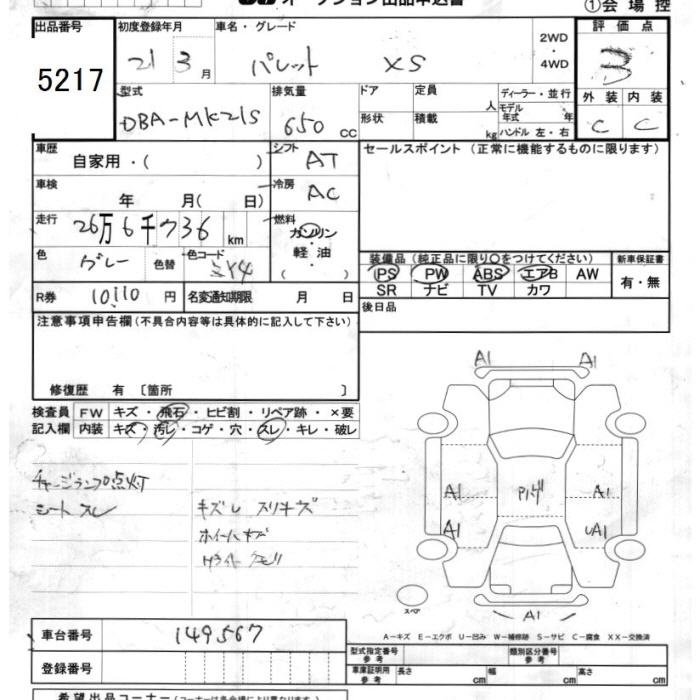 オークション出品申込書
①会場控
出品番号 初度登録年月 車名・グレード 2WD・4WD 評価点
5217 21 3月 パレット XS 3
型式 排気量 ドア 定員 人 ディーラー・並行 外装 内装
DBA-MK21S 650 cc 形状 積載 kg モデル年式 年 ハンドル 左・右 C C
車歴 自家用・( ) シフト AT セールスポイント (正常に機能するものに限ります)
車検 年 月( 日) 冷房 AC
走行 26万6千736 km 燃料 ガソリン・軽油・( )
色 グレー 色替 色コード
装備品 (純正品に限り○をつけてください) 新車保証書
PS PW ABS エアB AW 有・無
SR ナビ TV カワ
R券 10,110円 名変通知期限 月 日 後日品
注意事項申告欄(不具合内容等は具体的に記入して下さい)
修復歴 有 〔箇所 〕
検査員 FW キズ・飛石・ヒビ割・リペア跡・×要
記入欄 内装 キズ・汚レ・コゲ・穴・スレ・キレ・破レ
チャージランプ点灯
シートスレ
キズU スリキズ
ホイールキズ
Hライトクモリ
A1 A1
A1 A1
A1 A1
A1
スペア
A-キズ E-エクボ U-凹み W-補修跡 S-サビ C-腐食 XX-交換済
車台番号 149567
登録番号
型式指定番号 参考 類別区分番号 参考
車庫証明用 参考 長さ cm 幅 cm 高さ cm
希望出品コーナー(コーナーは各会場により異なります)